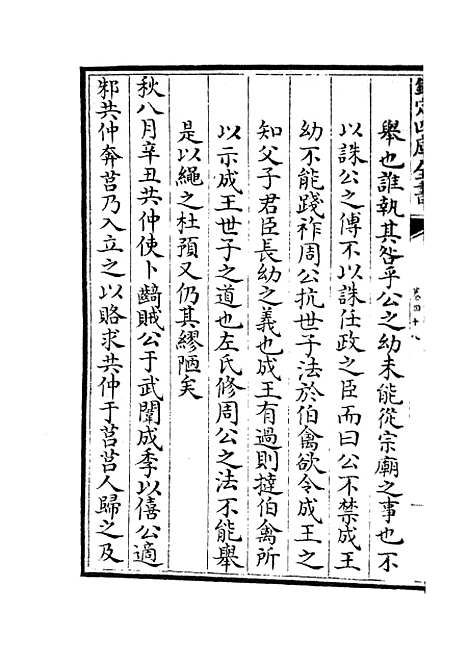 欽定四庫全書
卷四十八
舉也誰執其咎乎公之幼未能從宗廟之事也不
以誅公之傅不以誅任政之臣而曰公不禁成王
幼不能踐祚周公抗世子法於伯禽欲令成王之
知父子君臣長幼之義也成王有過則撻伯禽所
以示成王世子之道也左氏修周公之法不能舉
是以繩之杜預又仍其繆陋矣
秋八月辛丑共仲使卜齮賊公于武闈成季以僖公適
邾共仲奔莒乃入立之以賂求共仲于莒莒人歸之及